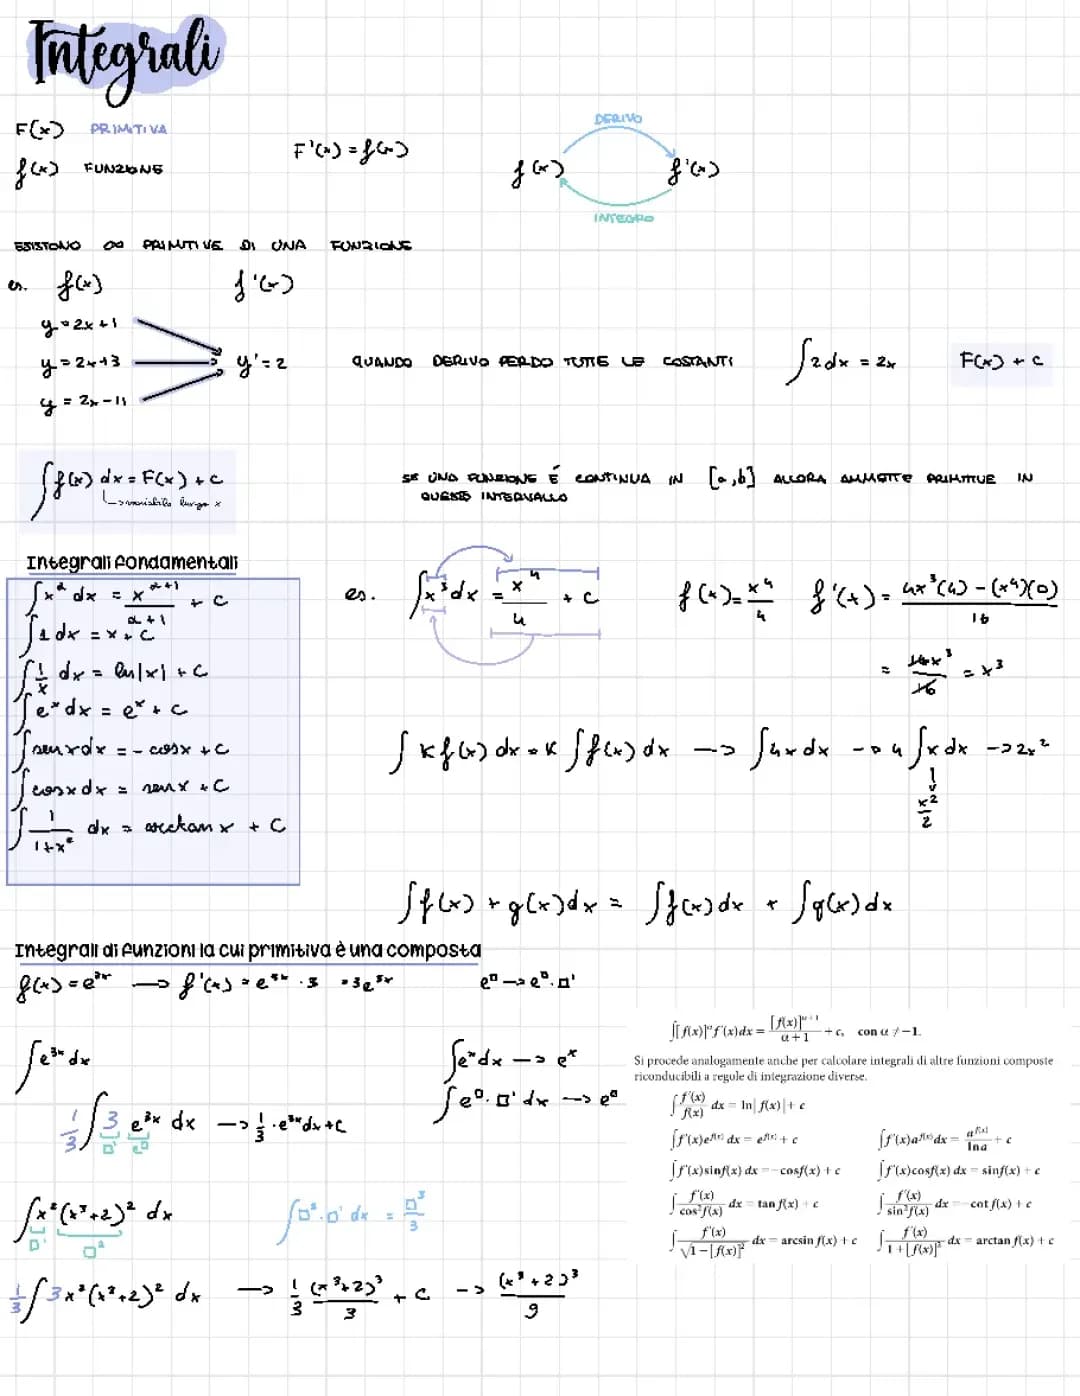 Integrali
F(x) PRIMITIVA
f(x) FUNZIONE
F'(x) = f(x)
DERIVO
f(x) f'(x)
INTEGRO
ESISTONO ∞ PRIMITIVE DI UNA FUNZIONE
es. f(x) f'(x)
y = 2x + 1
y = 2x + 3
y = 2x - 11
y' = 2
QUANDO DERIVO PERDO TUTTE LE COSTANTI
∫2dx = 2x
F(x) + c
∫f(x) dx = F(x) + c
↳ variabile lungo x
SE UNA FUNZIONE É CONTINUA IN [a,b] ALLORA AMMETTE PRIMITIVE IN
QUESTO INTERVALLO
Integrali fondamentali
∫x^α dx = x^(α+1)/(α+1) + c
∫1 dx = x + c
∫1/x dx = ln|x| + c
∫e^x dx = e^x + c
∫senxdx = - cosx + c
∫cosxdx = senx + c
∫1/(1+x²) dx = arctan x + c
es. ∫x³dx = x⁴/4 + c
f(x) = x⁴/4 f'(x) = (4x³(4) - (x⁴)(0))/16
= 16x³/16 = x³
∫kf(x) dx = k∫f(x) dx —> ∫4x dx —> 4∫x dx —> 2x²
x²/2
∫f(x) + g(x)dx = ∫f(x)dx + ∫g(x)dx
Integrali di funzioni la cui primitiva è una composta
f(x) = e^3x —> f'(x) = e^3x · 3 = 3e^3x
e^□ —> e^□ · □'
∫e^3x dx
∫e^x dx —> e^x
∫e^□ · □' dx —> e^□
1/3 ∫3 e^3x dx —> 1/3 · e^3x dx + c
□' e^□
∫x²(x³+2)² dx
□' □²
∫□² · □' dx = □³/3
1/3 ∫3x²(x³+2)² dx —> 1/3 (x³+2)³/3 + c —> (x³+2)³/9
∫[f(x)]^α f'(x)dx = [f(x)]^(α+1)/(α+1) + c, con α ≠ −1.
Si procede analogamente anche per calcolare integrali di altre funzioni composte
riconducibili a regole di integrazione diverse.
∫f'(x)/f(x) dx = ln|f(x)| + c
∫f'(x)e^f(x) dx = e^f(x) + c ∫f'(x)a^f(x) dx = a^f(x)/lna + c
∫f'(x)sinf(x) dx = −cosf(x) + c ∫f'(x)cosf(x) dx = sinf(x) + c
∫f'(x)/cos²f(x) dx = tan f(x) + c ∫f'(x)/sin²f(x) dx = −cot f(x) + c
∫f'(x)/√(1−[f(x)]²) dx = arcsin f(x) + c ∫f'(x)/(1+[f(x)]²) dx = arctan f(x) + c